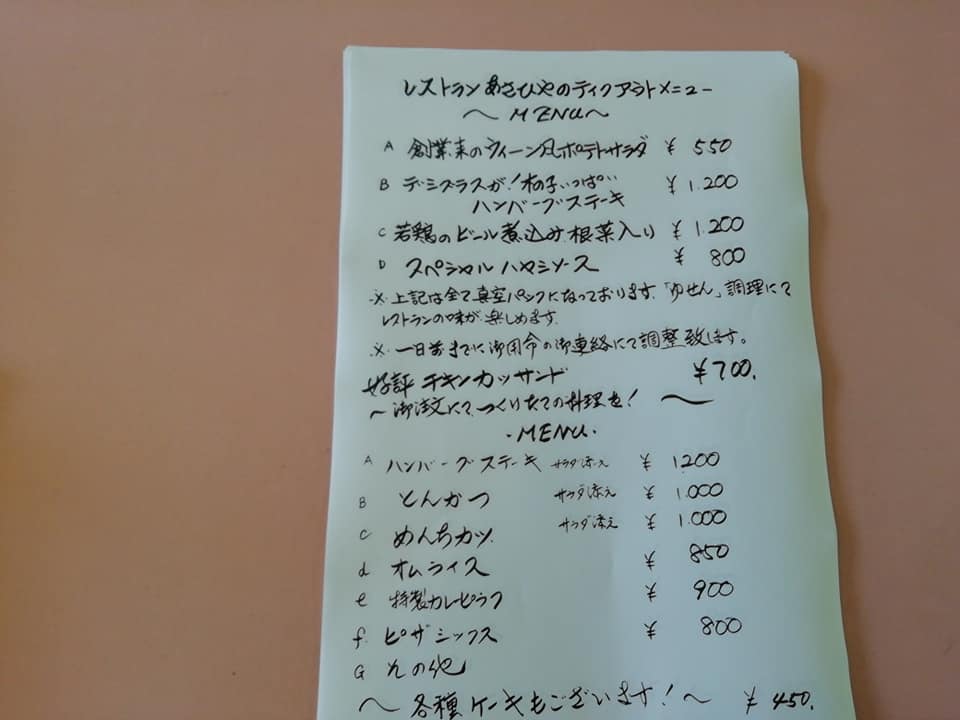 レストランあさひやのテイクアウトメニュー
〜 MENU 〜
A 創業来のウィーン風ポテトサラダ ¥ 550
B デミグラスが!木の子いっぱい ¥ 1.200
ハンバーグステーキ
C 若鶏のビール煮込み根菜入り ¥ 1.200
D スペシャルハヤシソース ¥ 800
※ 上記は全て真空パックになっております.「ゆせん」調理にて
レストランの味が楽しめます.
※ 一日前までに御用命の御連絡にて調整致します。
好評 チキンカツサンド ¥700.
〜御注文にて、つくりたての料理を! 〜
・MENU・
A ハンバーグステーキ サラダ添え ¥ 1200
B とんかつ サラダ添え ¥ 1.000
C めんちカツ サラダ添え ¥ 1.000
d オムライス ¥ 850
e 特製カレーピラフ ¥ 900
f. ピザシックス ¥ 800
G その他
〜 各種ケーキもございます! 〜 ¥ 450.